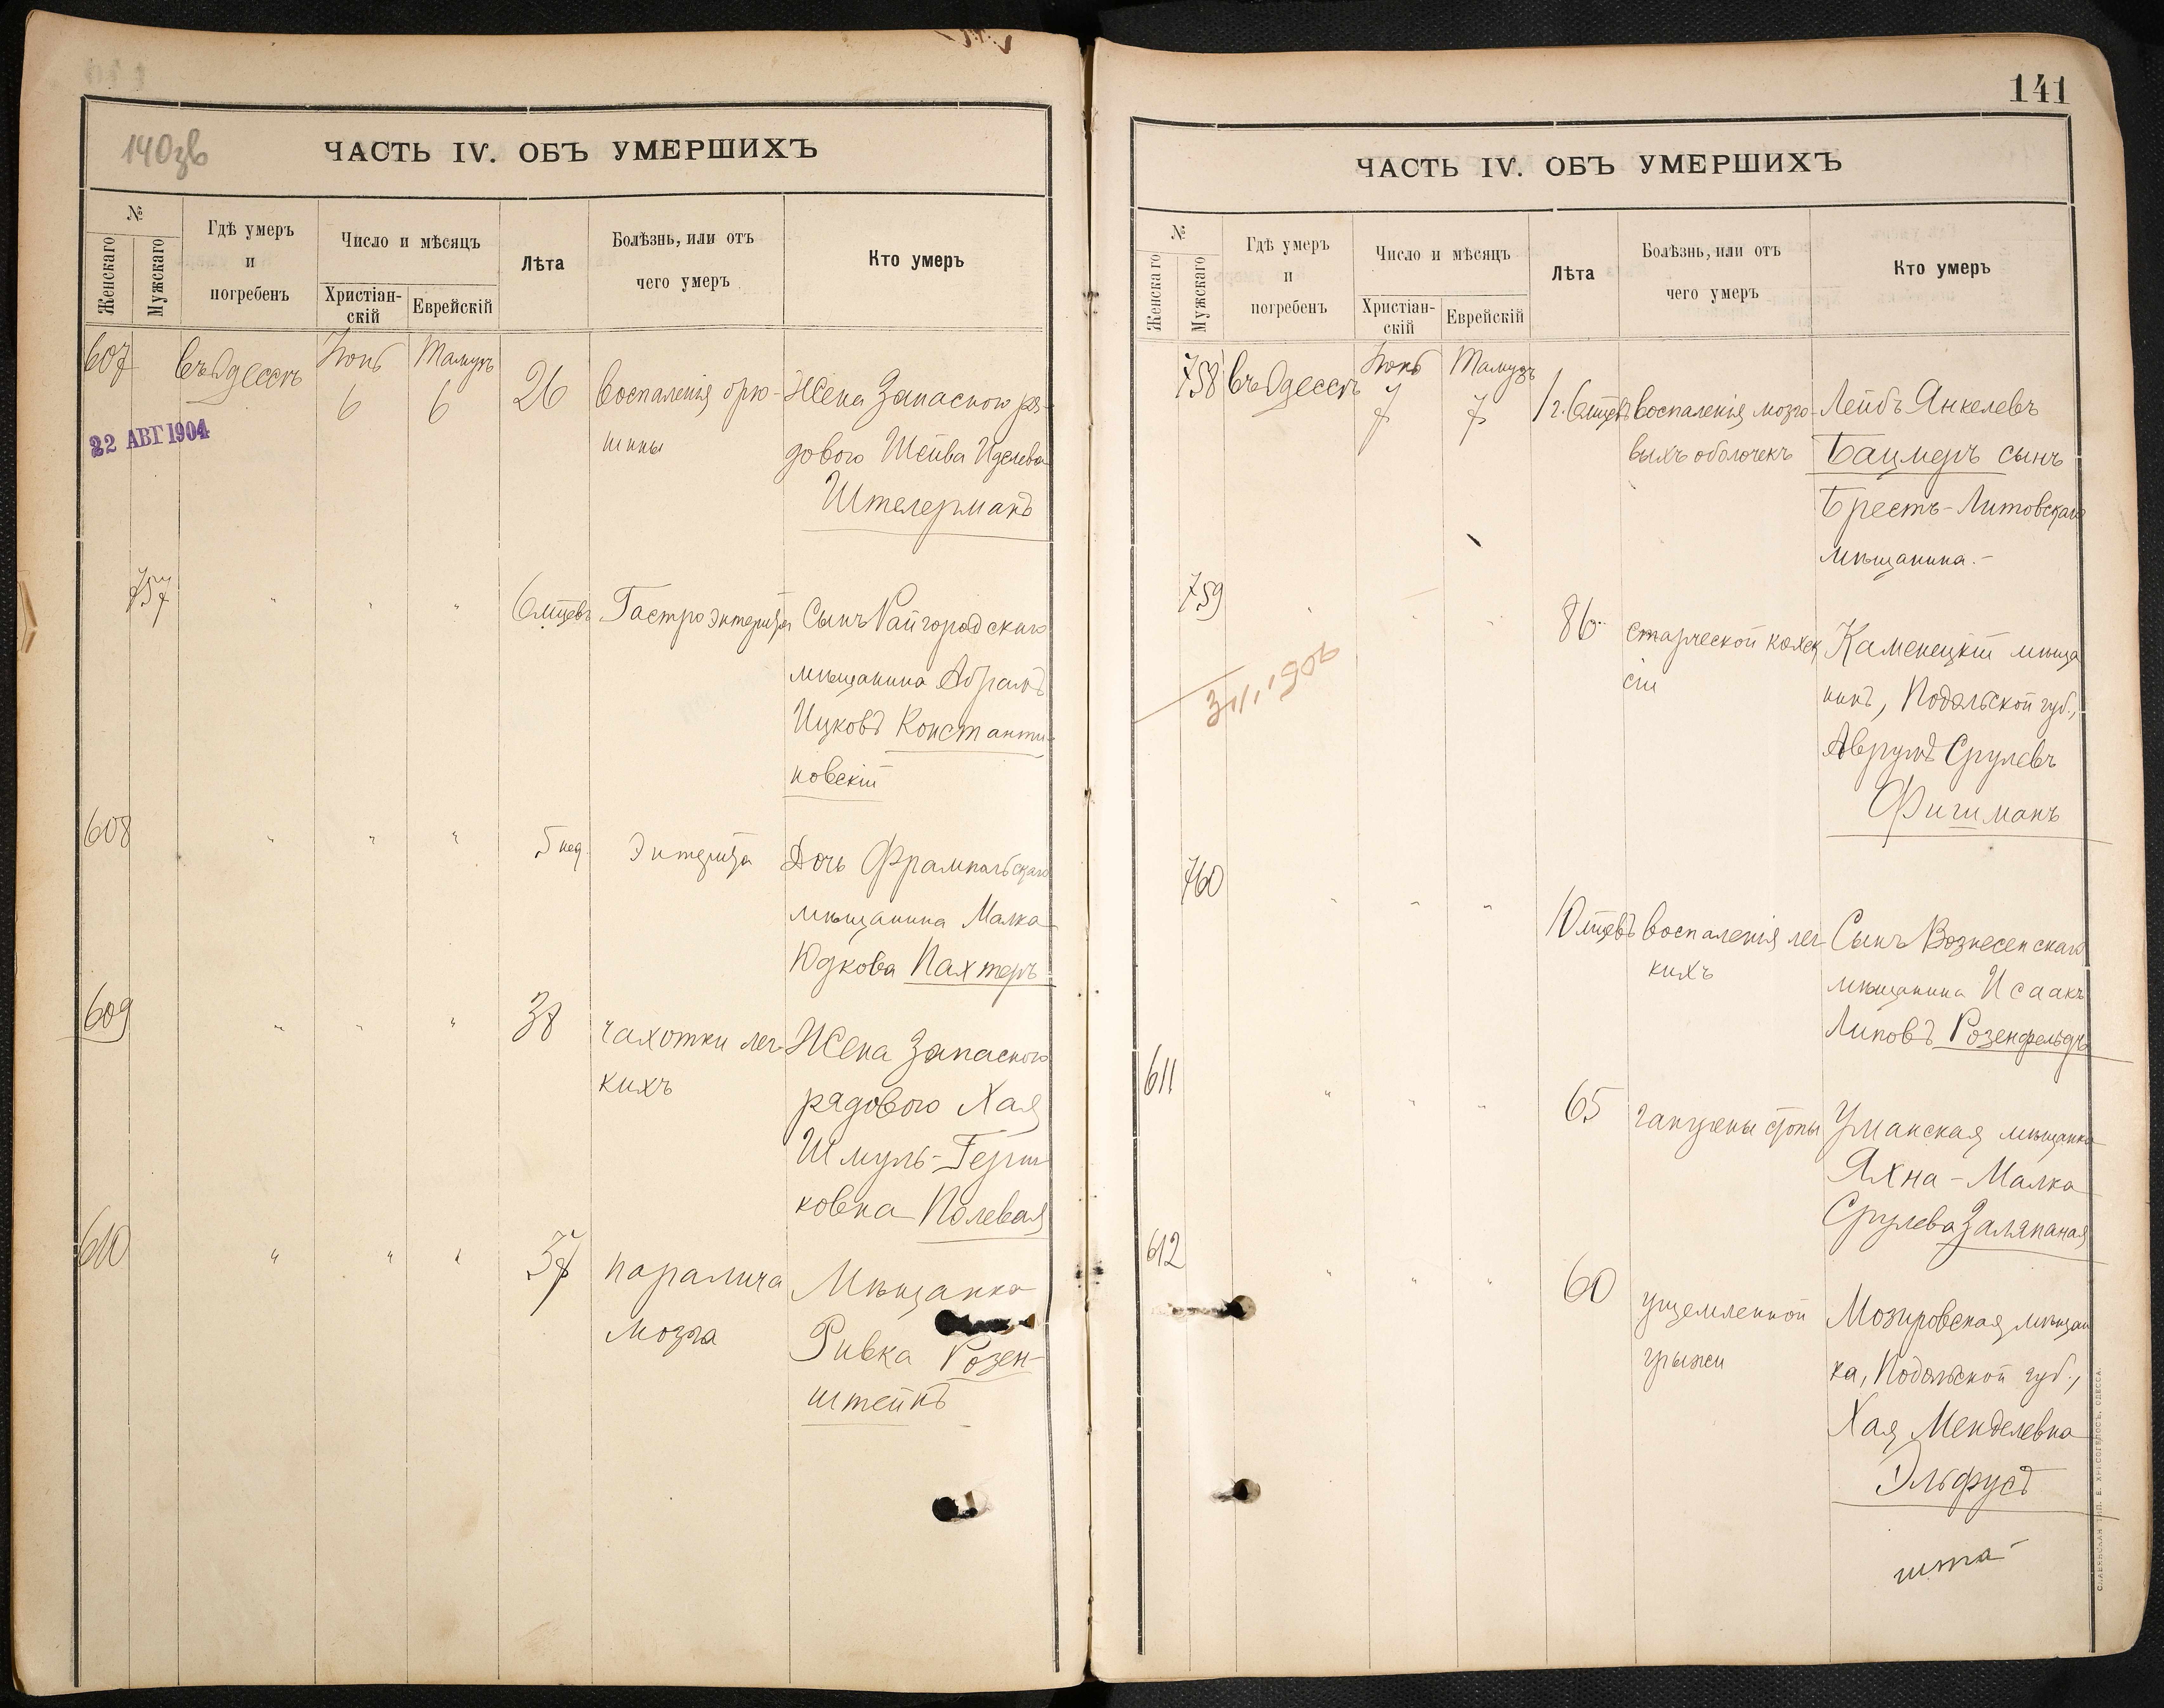 140зв
ЧАСТЬ IV. ОБЪ УМЕРШИХЪ
№
Женскаго
Мужскаго
Гдѣ умеръ
и
погребенъ
Число и мѣсяцъ
Христіан-
скій
Еврейскій
Лѣта
Болѣзнь, или отъ
чего умеръ
Кто умеръ
607
въ Одессѣ
Іюнь
6
Тамузъ
6
26
воспаленія брю-
шины
Жена Запасного ря-
дового Шейва Иделева
Штелерманъ
22 АВГ 1904
757
"
"
"
6 мцевъ
Гастроэнтерита
Сынъ Райгородскаго
мѣщанина Абрамъ
Ицковъ Константи-
новскій
608
"
"
"
5 нед.
Энтерита
Дочь Фрампольскаго
мѣщанина Малка
Юдкова Пахтеръ
609
"
"
"
38
чахотки лег-
кихъ
Жена Запасного
рядового Хая
Шмуль-Герш
ковна Полевая
610
"
"
"
37
паралича
мозга
Мѣщанка
Ривка Розен-
штейнъ
141
ЧАСТЬ IV. ОБЪ УМЕРШИХЪ
№
Женскаго
Мужскаго
Гдѣ умеръ
и
погребенъ
Число и мѣсяцъ
Христіан-
скій
Еврейскій
Лѣта
Болѣзнь, или отъ
чего умеръ
Кто умеръ
758
въ Одессѣ
Іюнь
7
Тамузъ
7
1 г. 6 мцевъ
воспаленія мозго-
выхъ оболочекъ
Лейбъ Янкелевъ
Бацмеръ сынъ
Брестъ-Литовскаго
мѣщанина.-
759
"
"
"
86
старческой кахек
сіи
Каменецкій мѣща
нинъ, Подольской губ.,
Аврумъ Срулевъ
Фигиманъ
760
"
"
"
10 мцевъ
воспаленія лег-
кихъ
Сынъ Вознесенскаго
мѣщанина Исаакъ
Липовъ Розенфельдъ
611
"
"
"
65
гангрены стопы
Уманская мѣщанка
Яхна-Малка
Срулева Заляпаная
612
"
"
"
60
ущемленной
грыжи
Мозыровская мѣщан
ка, Подольской губ.,
Хая Менделевна
Эльфусъ
СЛАВЯНСКАЯ ТИП. Е. ХРИСОГЕЛОСЪ, ОДЕССА.